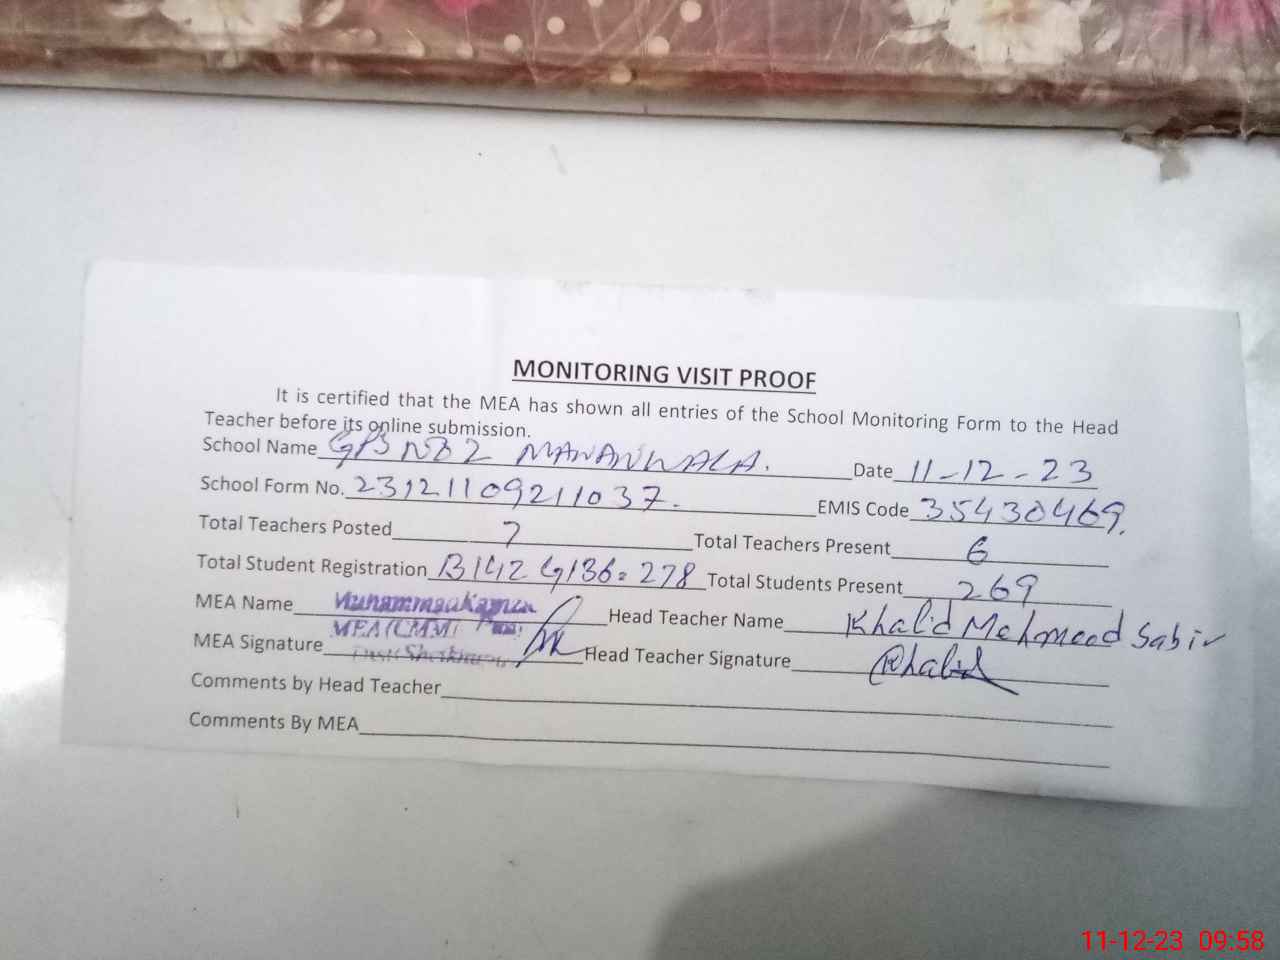 MONITORING VISIT PROOF
It is certified that the MEA has shown all entries of the School Monitoring Form to the Head
Teacher before its online submission.
School Name GPS NB 2 MANANWALA. Date 11-12-23
School Form No. 23121109211037. EMIS Code 35430469.
Total Teachers Posted 7 Total Teachers Present 6
Total Student Registration B142 G136=278 Total Students Present 269
MEA Name Muhammad Head Teacher Name Khalid Mehmood Sabir
MEA (CMM)
MEA Signature Head Teacher Signature Khalid
Comments by Head Teacher
Comments By MEA
11-12-23 09:58